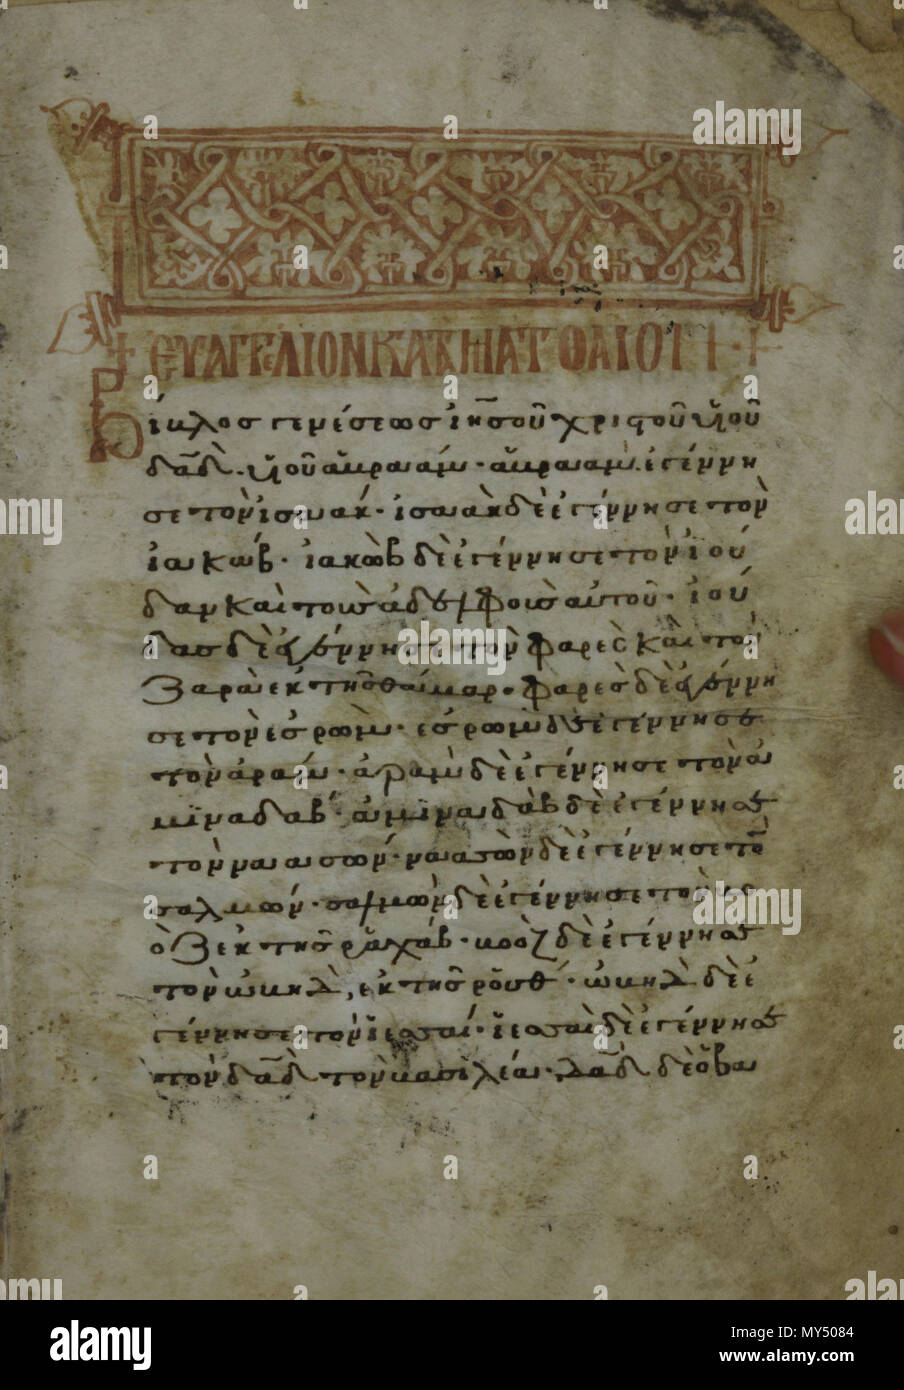 + ΕΥΑΓΓΕΛΙΟΝ ΚΑΤΑ ΜΑΤΘΑΙΟΝ +
Βίβλος γενέσεως ἰησοῦ χριστοῦ υἱοῦ
δαδ· υἱοῦ ἀβραάμ· ἀβραὰμ ἐγέννη
σε τὸν ἰσαάκ· ἰσαὰκ δὲ ἐγέννησε τὸν
ἰακώβ· ἰακὼβ δὲ ἐγέννησε τὸν ἰού
δαν καὶ τοὺς ἀδελφοὺς αὐτοῦ· ἰού
δας δὲ ἐγέννησε τὸν φαρὲς καὶ τὸν
ζαρὰ ἐκ τῆς θάμαρ· φαρὲς δὲ ἐγέννη
σε τὸν ἐσρώμ· ἐσρὼμ δὲ ἐγέννησε
τὸν ἀράμ· ἀρὰμ δὲ ἐγέννησε τὸν ἀ
μιναδάβ· ἀμιναδὰβ δὲ ἐγέννησε
τὸν ναασών· ναασὼν δὲ ἐγέννησε τὸν
σαλμών· σαλμὼν δὲ ἐγέννησε τὸν β
ὸζ ἐκ τῆς ραχάβ· βοὸζ δὲ ἐγέννησε
τὸν ὠβὴδ, ἐκ τῆς ρούθ· ὠβὴδ δὲ ἐ
γέννησε τὸν ἰεσσαί· ἰεσσαὶ δὲ ἐγέννησε
τὸν δαδ τὸν βασιλέα· δαδ δὲ ὁ βα
alamy
alamy
Image ID: MY5084
www.alamy.com